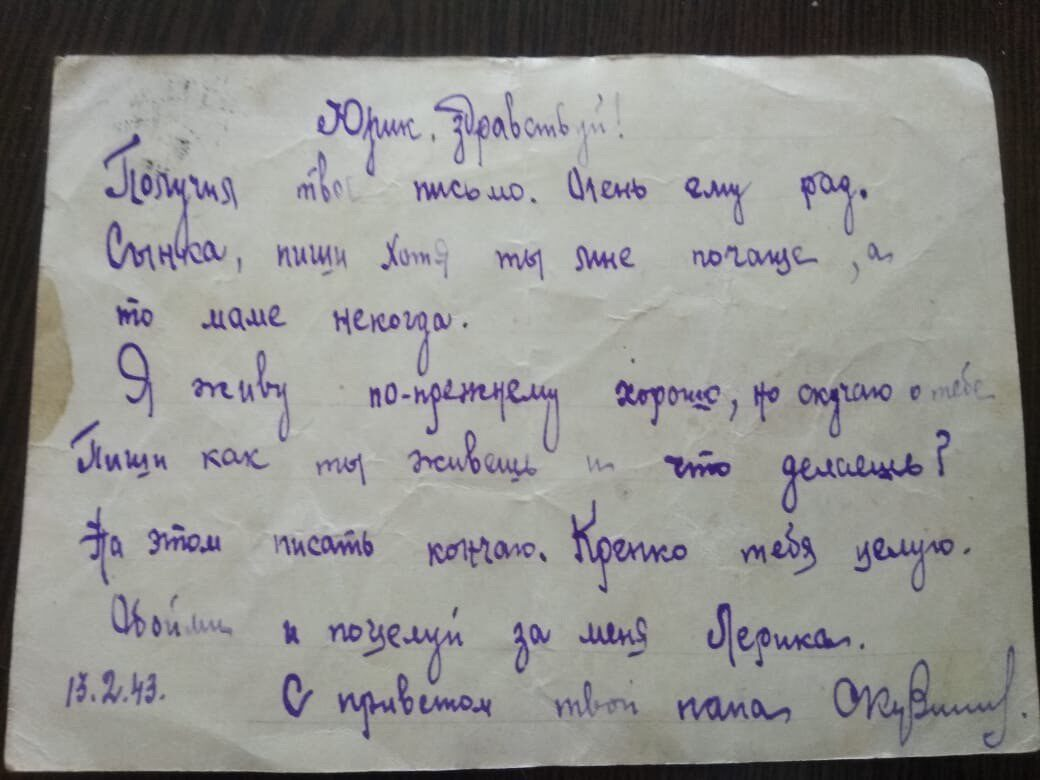 Юрик, здравствуй!
Получил твое письмо. Очень ему рад.
Сынка, пиши хотя ты мне почаще, а
то маме некогда.
Я живу по-прежнему хорошо, но скучаю о тебе
Пиши как ты живешь и что делаешь?
На этом писать кончаю. Крепко тебя целую.
Обойми и поцелуй за меня Лерика.
13.2.43. С приветом твой папа